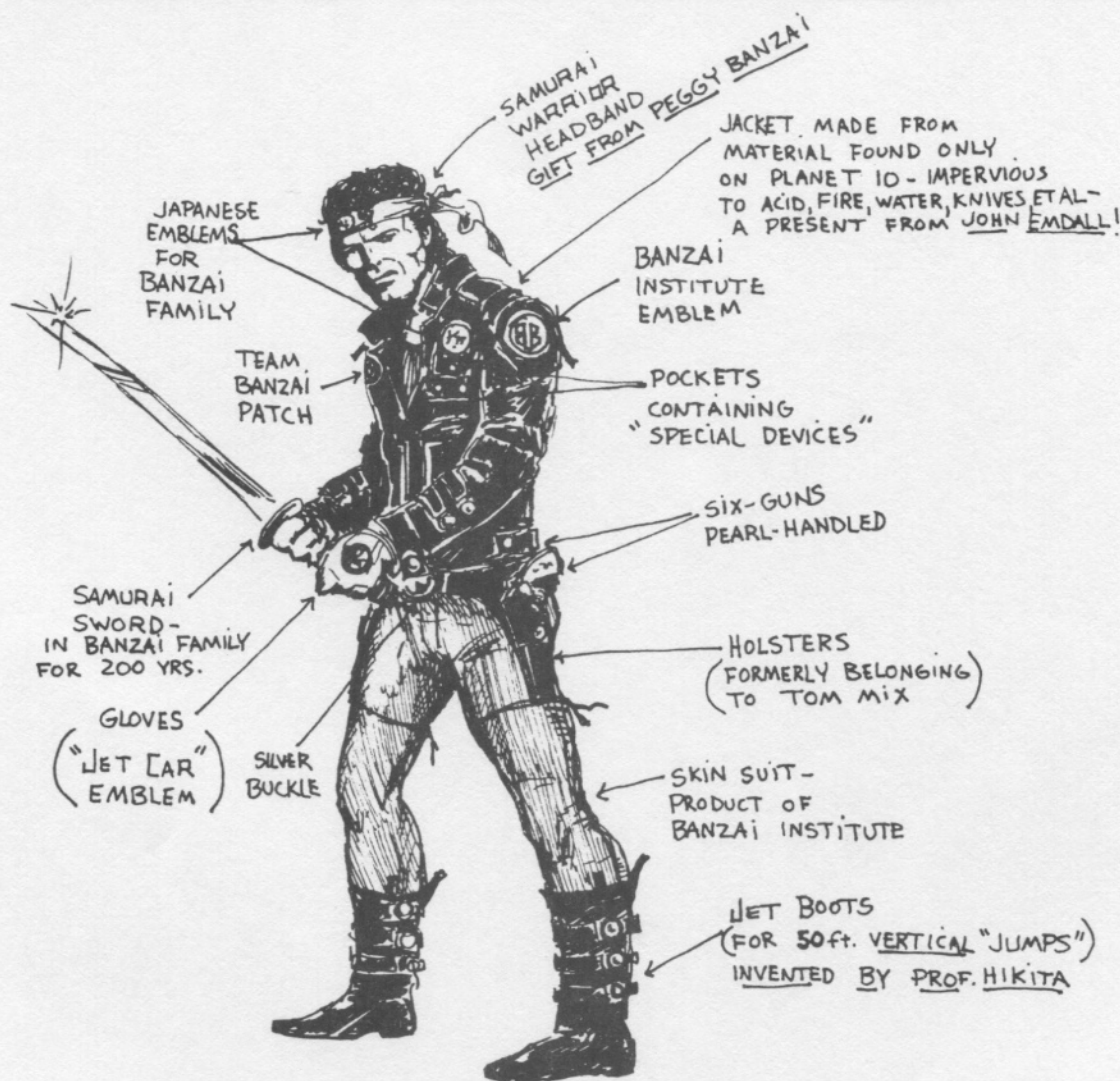 SAMURAI
WARRIOR
HEADBAND
GIFT FROM PEGGY BANZAI
JACKET MADE FROM
MATERIAL FOUND ONLY
ON PLANET 10 - IMPERVIOUS
TO ACID, FIRE, WATER, KNIVES, ET AL -
A PRESENT FROM JOHN EMDALL!
JAPANESE
EMBLEMS
FOR
BANZAI
FAMILY
BANZAI
INSTITUTE
EMBLEM
BB
TEAM
BANZAI
PATCH
POCKETS
CONTAINING
"SPECIAL DEVICES"
SIX-GUNS
PEARL-HANDLED
SAMURAI
SWORD -
IN BANZAI FAMILY
FOR 200 YRS.
HOLSTERS
(FORMERLY BELONGING
TO TOM MIX)
GLOVES
("JET CAR"
EMBLEM)
SILVER
BUCKLE
SKIN SUIT -
PRODUCT OF
BANZAI INSTITUTE
JET BOOTS
(FOR 50 ft. VERTICAL "JUMPS")
INVENTED BY PROF. HIKITA